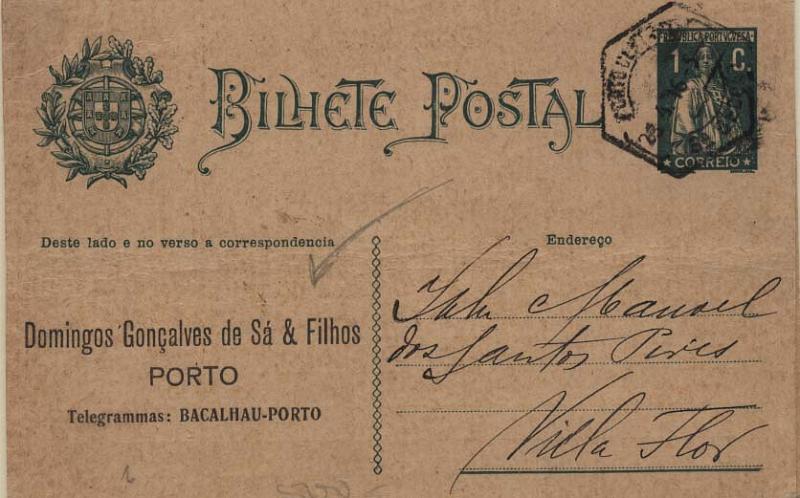 BILHETE POSTAL
REPUBLICA PORTUGUESA
1 C.
CORREIO
PORTO
Deste lado e no verso a correspondencia
Domingos Gonçalves de Sá & Filhos
PORTO
Telegrammas: BACALHAU-PORTO
Endereço
Manoel
dos Santos Pires
Villa Flor